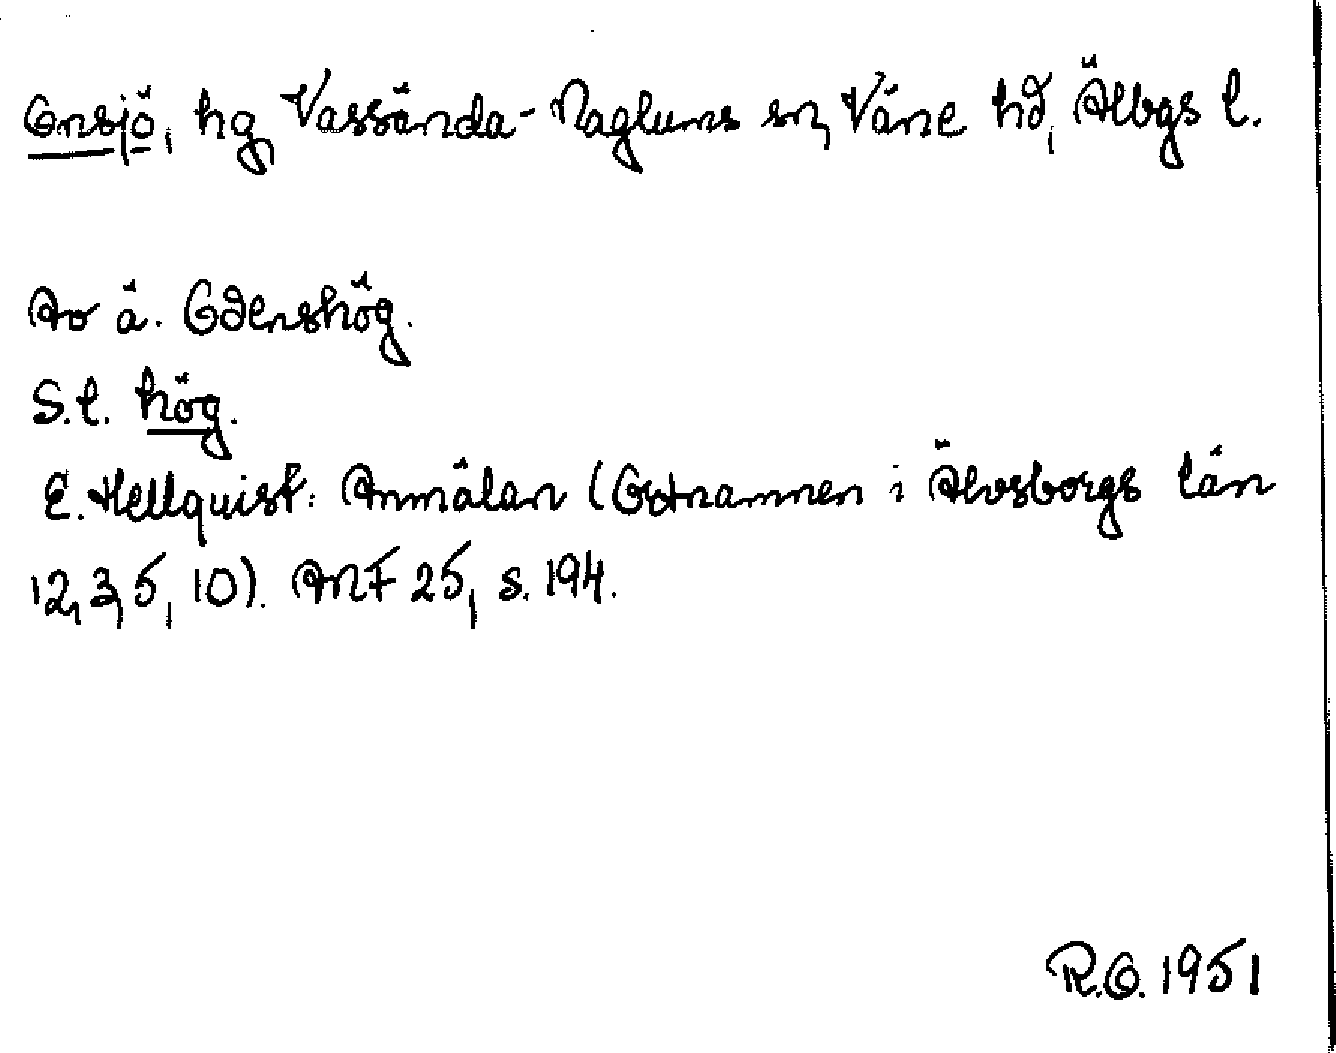 Onsjö, hg, Vassända-Naglums sn, Väne hd, Älbgs l.
Av ä. Odenshög.
S.l. hög.
E. Hellquist: Anmälan (Ortnamnen i Älvsborgs län
12, 3, 5, 10). ANF 25, s. 194.
R.O. 1951